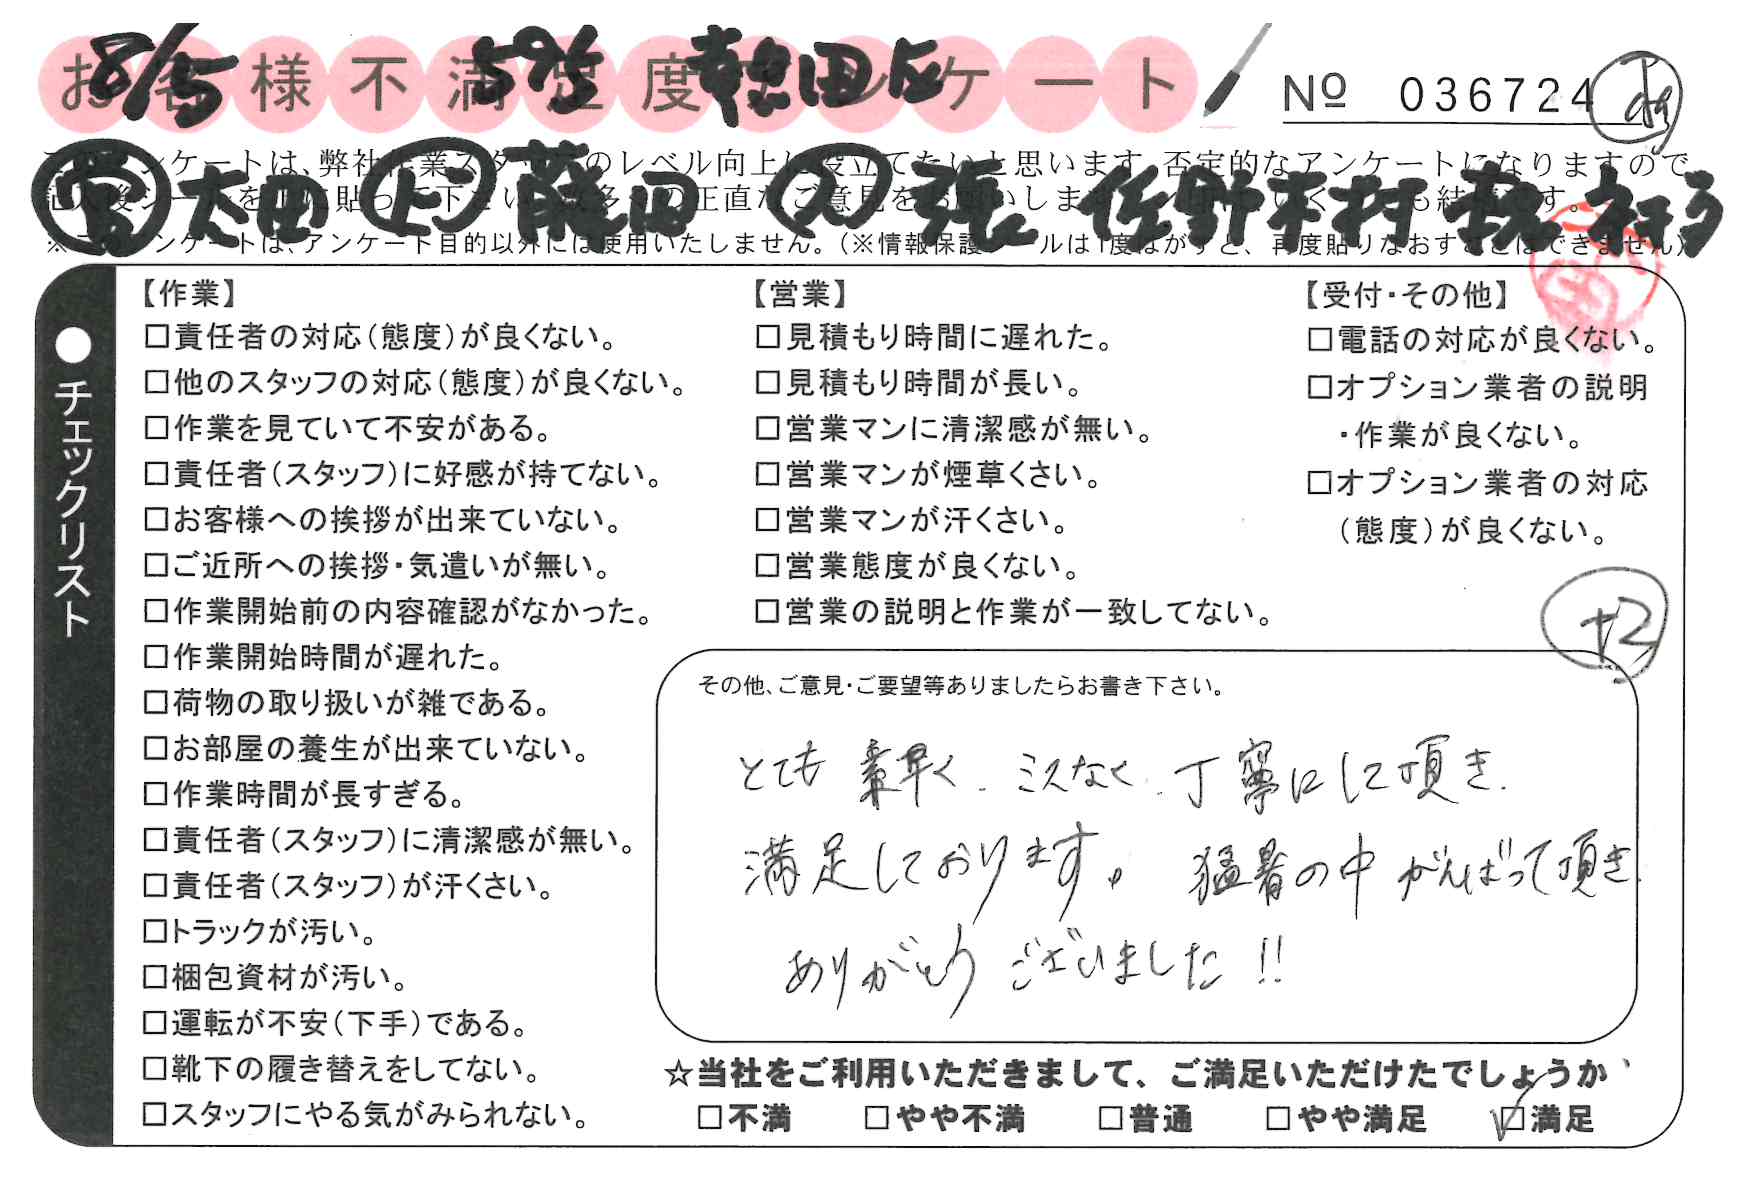 お客様不満足度アンケート
8/5
№ 036724
営 太田 上 藤田 入 張 佐野 木村
このアンケートは、弊社作業スタッフのレベル向上に役立てたいと思います。否定的なアンケートになりますので
※このアンケートは、アンケート目的以外には使用いたしません。(※情報保護シールは1度はがすと、再度貼りなおすことはできません)
●チェックリスト
【作業】
□責任者の対応(態度)が良くない。
□他のスタッフの対応(態度)が良くない。
□作業を見ていて不安がある。
□責任者(スタッフ)に好感が持てない。
□お客様への挨拶が出来ていない。
□ご近所への挨拶・気遣いが無い。
□作業開始前の内容確認がなかった。
□作業開始時間が遅れた。
□荷物の取り扱いが雑である。
□お部屋の養生が出来ていない。
□作業時間が長すぎる。
□責任者(スタッフ)に清潔感が無い。
□責任者(スタッフ)が汗くさい。
□トラックが汚い。
□梱包資材が汚い。
□運転が不安(下手)である。
□靴下の履き替えをしてない。
□スタッフにやる気がみられない。
【営業】
□見積もり時間に遅れた。
□見積もり時間が長い。
□営業マンに清潔感が無い。
□営業マンが煙草くさい。
□営業マンが汗くさい。
□営業態度が良くない。
□営業の説明と作業が一致してない。
【受付・その他】
□電話の対応が良くない。
□オプション業者の説明
・作業が良くない。
□オプション業者の対応
(態度)が良くない。
+2
その他、ご意見・ご要望等ありましたらお書き下さい。
とても素早く、ミスなく、丁寧にして頂き、
満足しております。猛暑の中がんばって頂き、
ありがとうございました!!
☆当社をご利用いただきまして、ご満足いただけたでしょうか
□不満 □やや不満 □普通 □やや満足 ☑満足